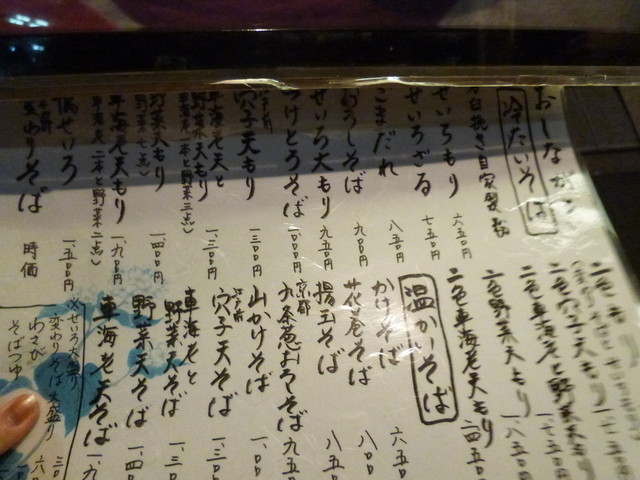 おしながき
冷たいそば
石臼挽き自家製粉
せいろもり 六五〇円
せいろざる 七五〇円
ごまだれ 八五〇円
おろしそば 九〇〇円
せいろ大もり 九五〇円
つけとろそば 一、〇〇〇円
穴子天もり 一、三〇〇円
車海老天と
野菜天もり 一、三〇〇円
車海老一本と野菜三点
野菜天もり 一、四〇〇円
野菜七点
車海老天もり 一、九〇〇円
車海老二本と野菜二点
鴨せいろ 一、五〇〇円
変わりそば 時価
二色もり
二色穴子天もり
二色車海老と野菜天もり
二色野菜天もり 一、八五〇
二色車海老天もり 二、四五〇
温かいそば
かけそば 六五〇
花巻そば 八〇〇
揚玉そば 八五〇
京都
九条葱おろそば 九五〇
山かけそば 一、〇〇
穴子天そば 一、三〇
車海老と
野菜天そば 一、三〇
野菜天そば 一、四〇
車海老天そば 一、九
※せいろ大盛り
変わりそば大盛り
わさび
そばつゆ